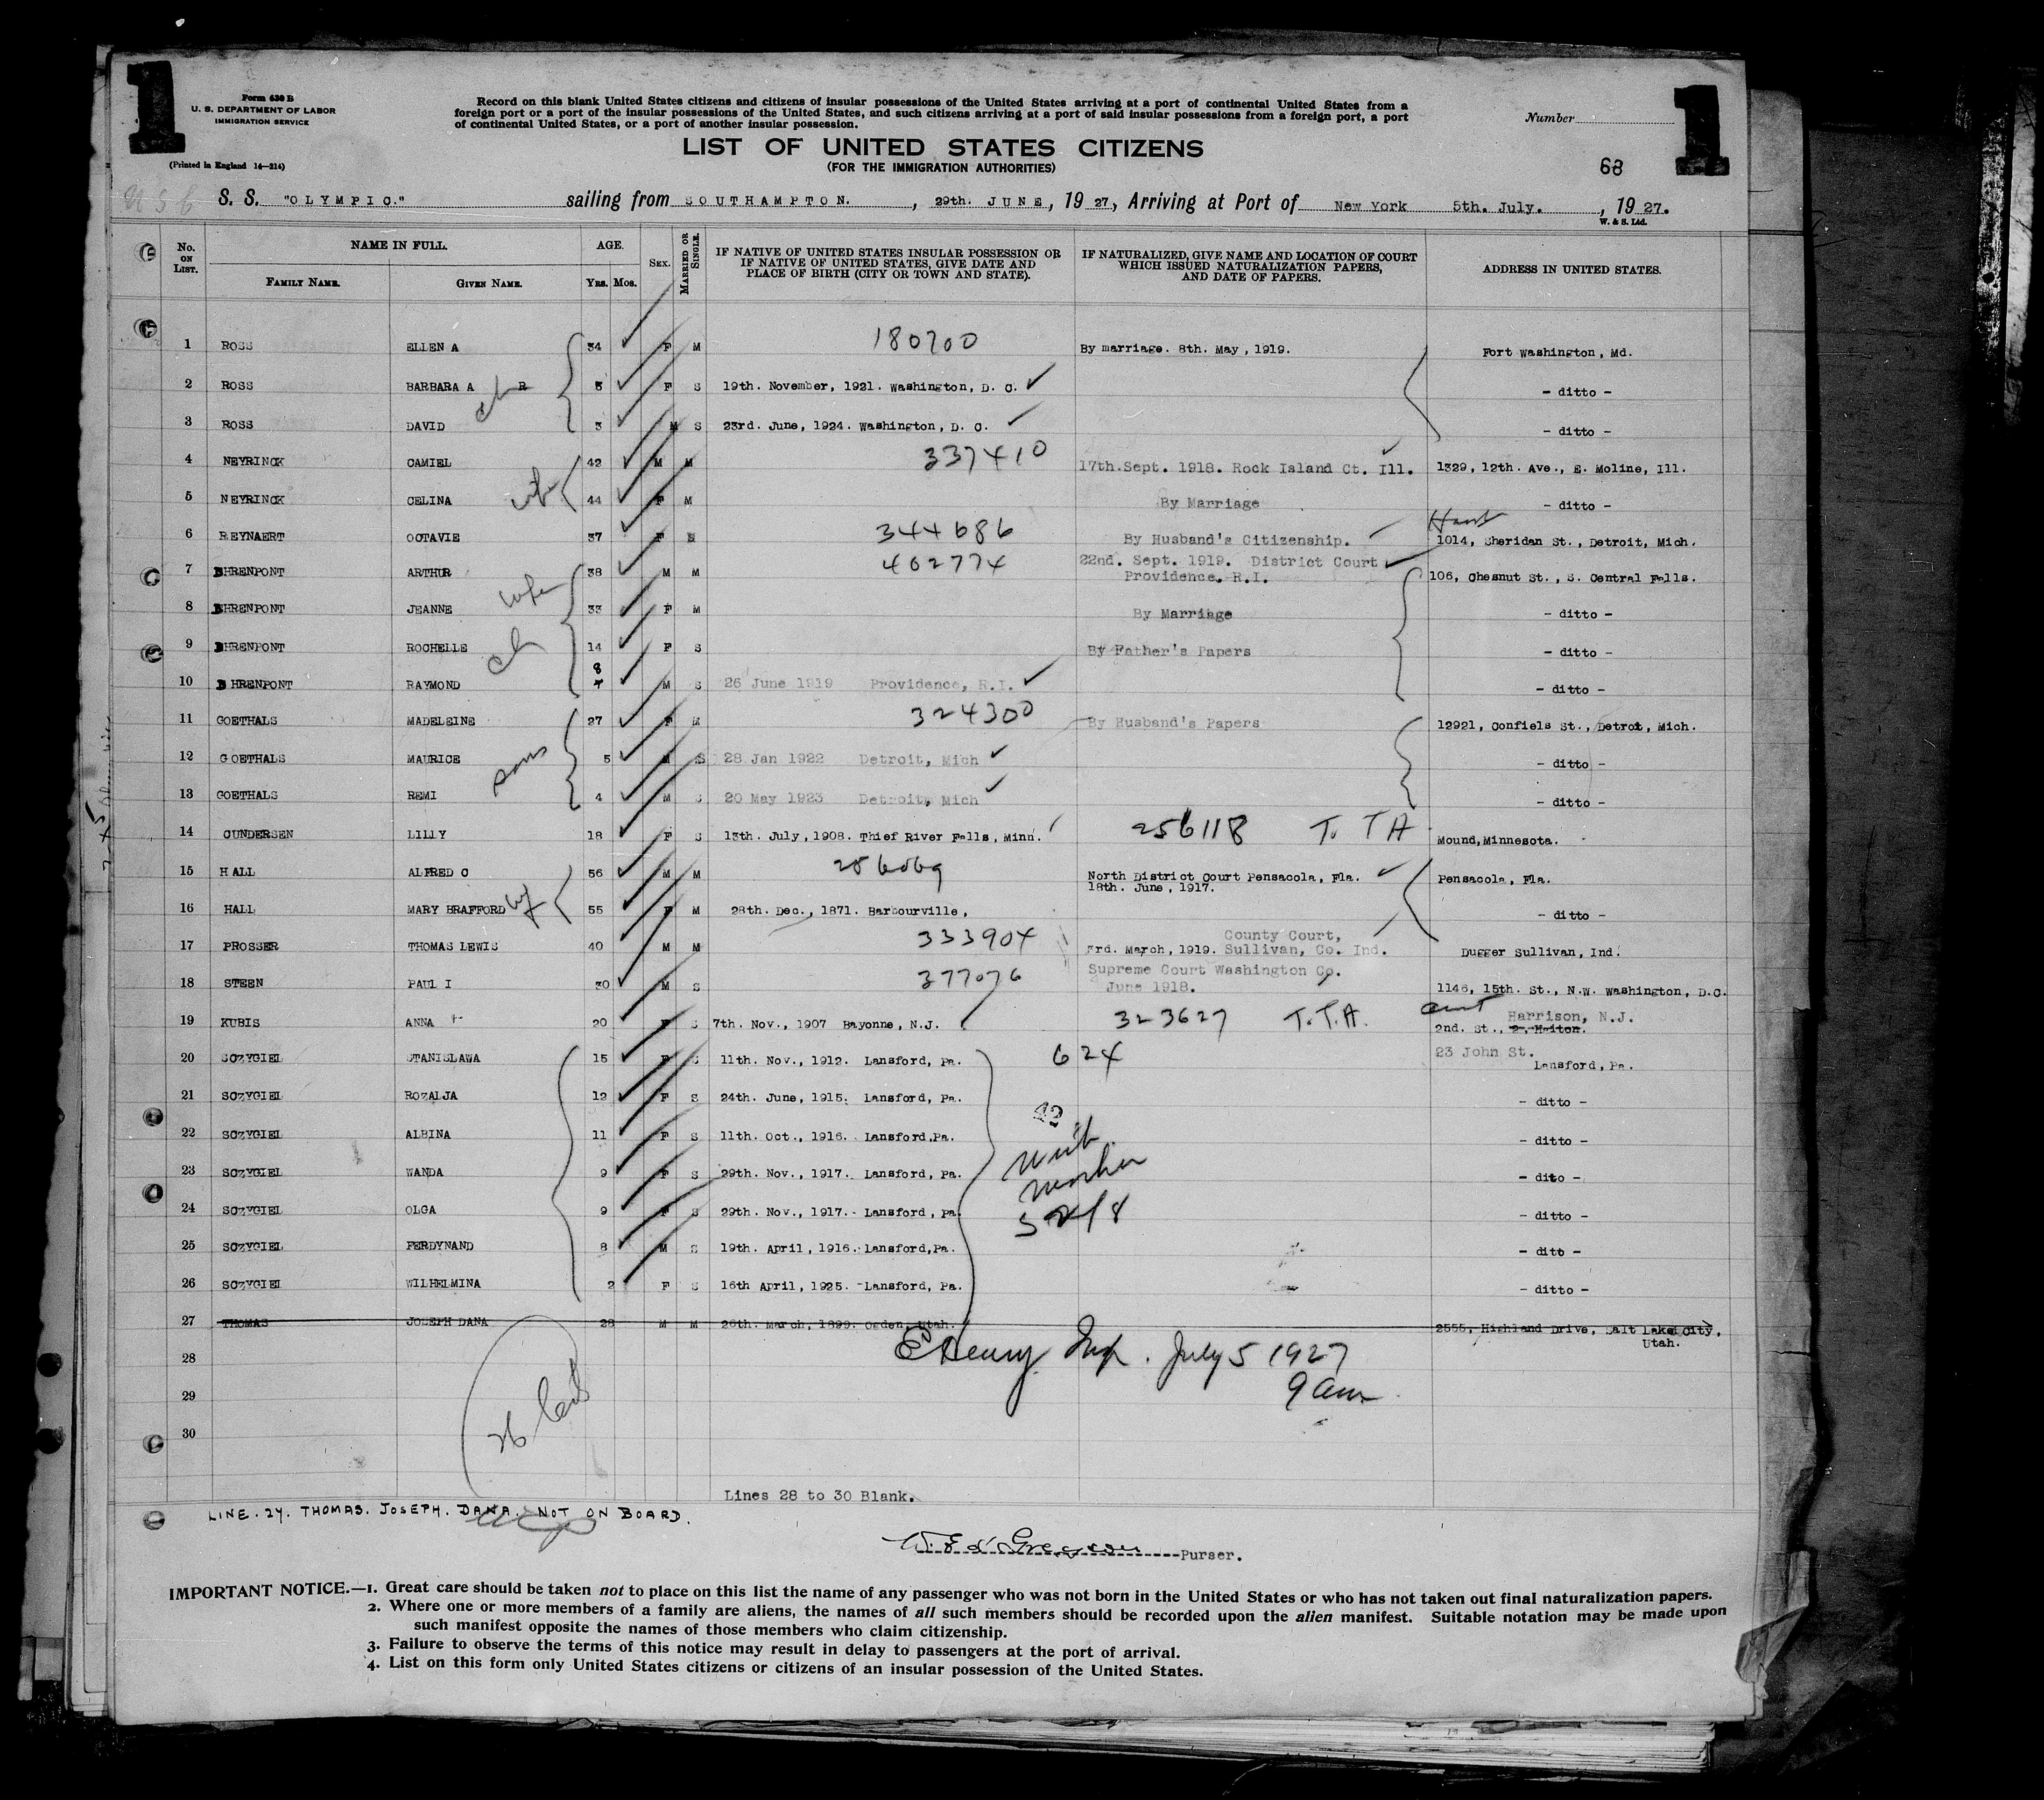 1
1
Form 630 B
U. S. DEPARTMENT OF LABOR
IMMIGRATION SERVICE
(Printed in England 14—214)
Record on this blank United States citizens and citizens of insular possessions of the United States arriving at a port of continental United States from a
foreign port or a port of the insular possessions of the United States, and such citizens arriving at a port of said insular possessions from a foreign port, a port
of continental United States, or a port of another insular possession.
Number
LIST OF UNITED STATES CITIZENS
(FOR THE IMMIGRATION AUTHORITIES)
68
S. S. "OLYMPIC." sailing from SOUTHAMPTON. , 29th. JUNE, 19 27, Arriving at Port of New York 5th. July. , 19 27.
W. & S. Ltd.
No. ON LIST. NAME IN FULL. AGE. SEX. MARRIED OR SINGLE. IF NATIVE OF UNITED STATES INSULAR POSSESSION OR IF NATIVE OF UNITED STATES, GIVE DATE AND PLACE OF BIRTH (CITY OR TOWN AND STATE). IF NATURALIZED, GIVE NAME AND LOCATION OF COURT WHICH ISSUED NATURALIZATION PAPERS, AND DATE OF PAPERS. ADDRESS IN UNITED STATES.
FAMILY NAME. GIVEN NAME. YRS. MOS.
1 ROSS ELLEN A 34 F M 180700 By marriage. 8th. May, 1919. Fort Washington, Md.
2 ROSS BARBARA A R 5 F S 19th. November, 1921. Washington, D. C. - ditto -
ch
3 ROSS DAVID 3 M S 23rd. June, 1924. Washington, D. C. - ditto -
4 NEYRINCK CAMIEL 42 M M 337410 17th.Sept. 1918. Rock Island Ct. Ill. 1329, 12th. Ave., E. Moline, Ill.
5 NEYRINCK CELINA wife 44 F M By Marriage - ditto -
6 REYNAERT OCTAVIE 37 F 344686 By Husband's Citizenship. 1014, Sheridan St., Detroit, Mich.
7 BHRENPONT ARTHUR 38 M M 402774 22nd. Sept. 1919. District Court Providence, R.I. 106, Chesnut St., S. Central Falls.
8 BHRENPONT JEANNE wife 33 F M By Marriage - ditto -
9 BHRENPONT ROCHELLE ch 14 F S By Father's Papers - ditto -
10 BHRENPONT RAYMOND 8 7 M S 26 June 1919 Providence, R.I. - ditto -
11 GOETHALS MADELEINE 27 F M 324300 By Husband's Papers 12921, Confiels St., Detroit, Mich.
12 GOETHALS MAURICE sons 5 M S 28 Jan 1922 Detroit, Mich - ditto -
13 GOETHALS REMI 4 M S 20 May 1923 Detroit, Mich - ditto -
14 GUNDERSEN LILLY 18 F S 13th. July, 1908. Thief River Falls, Minn. 256118 T. T A Mound, Minnesota.
15 HALL ALFRED C 56 M M North District Court Pensacola, Fla. 18th. June, 1917. Pensacola, Fla.
16 HALL MARY BRAFFORD wf 55 F M 28th. Dec., 1871. Barbourville, - ditto -
17 PROSSER THOMAS LEWIS 40 M M 333904 3rd. March, 1919. County Court, Sullivan, Co. Ind. Dugger Sullivan, Ind.
18 STEEN PAUL I 30 M S 377076 Supreme Court Washington Co. June 1918. 1146, 15th. St., N.W. Washington, D.C.
19 KUBIS ANNA 20 F S 7th. Nov., 1907 Bayonne, N.J. 323627 T.T.A. aunt Harrison, N.J. 2nd. St., 2, Haiton.
20 SCZYGIEL STANISLAWA 15 F S 11th. Nov., 1912. Lansford, Pa. 624 23 John St. Lansford, Pa.
21 SCZYGIEL ROZALJA 12 F S 24th. June, 1915. Lansford, Pa. - ditto -
22 SCZYGIEL ALBINA 11 F S 11th. Oct., 1916. Lansford,Pa. - ditto -
23 SCZYGIEL WANDA 9 F S 29th. Nov., 1917. Lansford, Pa. with mother - dito -
24 SCZYGIEL OLGA 9 F S 29th. Nov., 1917. Lansford, Pa. - ditto -
25 SCZYGIEL FERDYNAND 8 M S 19th. April, 1916. Lansford,Pa. - dito -
26 SCZYGIEL WILHELMINA 2 F S 16th April, 1925. Lansford, Pa. - ditto -
27 THOMAS JOSEPH DANA 28 M M 26th. March, 1899. Ogden, Utah. 2555, Highland Drive, Salt Lake City, Utah.
28 Henry Insp. July 5 1927
29 9 am
30
Lines 28 to 30 Blank.
LINE. 27. THOMAS. JOSEPH. DANA. NOT ON BOARD.
Purser.
IMPORTANT NOTICE.—1. Great care should be taken not to place on this list the name of any passenger who was not born in the United States or who has not taken out final naturalization papers.
2. Where one or more members of a family are aliens, the names of all such members should be recorded upon the alien manifest. Suitable notation may be made upon
such manifest opposite the names of those members who claim citizenship.
3. Failure to observe the terms of this notice may result in delay to passengers at the port of arrival.
4. List on this form only United States citizens or citizens of an insular possession of the United States.